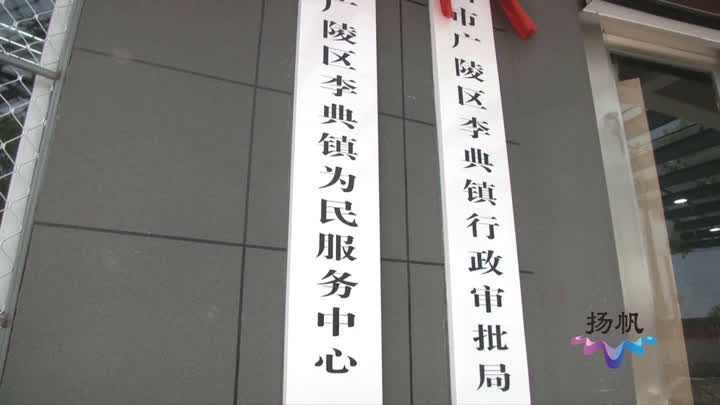 广陵区李典镇为民服务中心
市广陵区李典镇行政审批局
扬帆